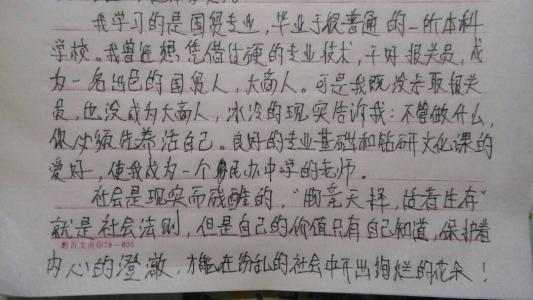 我学习的是国贸专业，毕业于很普通的一所本科
学校。我曾通想凭借过硬的专业技术，干好报关员，成
为一名出色的国贸人，大商人。可是我既没考取报关
员，也没成为大商人，冰冷的现实告诉我：不管做什么，
你必须先养活自己。良好的专业基础和钻研文化课的
爱好，使我成为一个民办中学的老师。
社会是现实而残酷的，“物竞天择，适者生存”
就是社会法则，但是自己的价值只有自己知道，保护着
黔百文商印78—635
内心的澄澈，才能在纷乱的社会中开出绚烂的花朵！